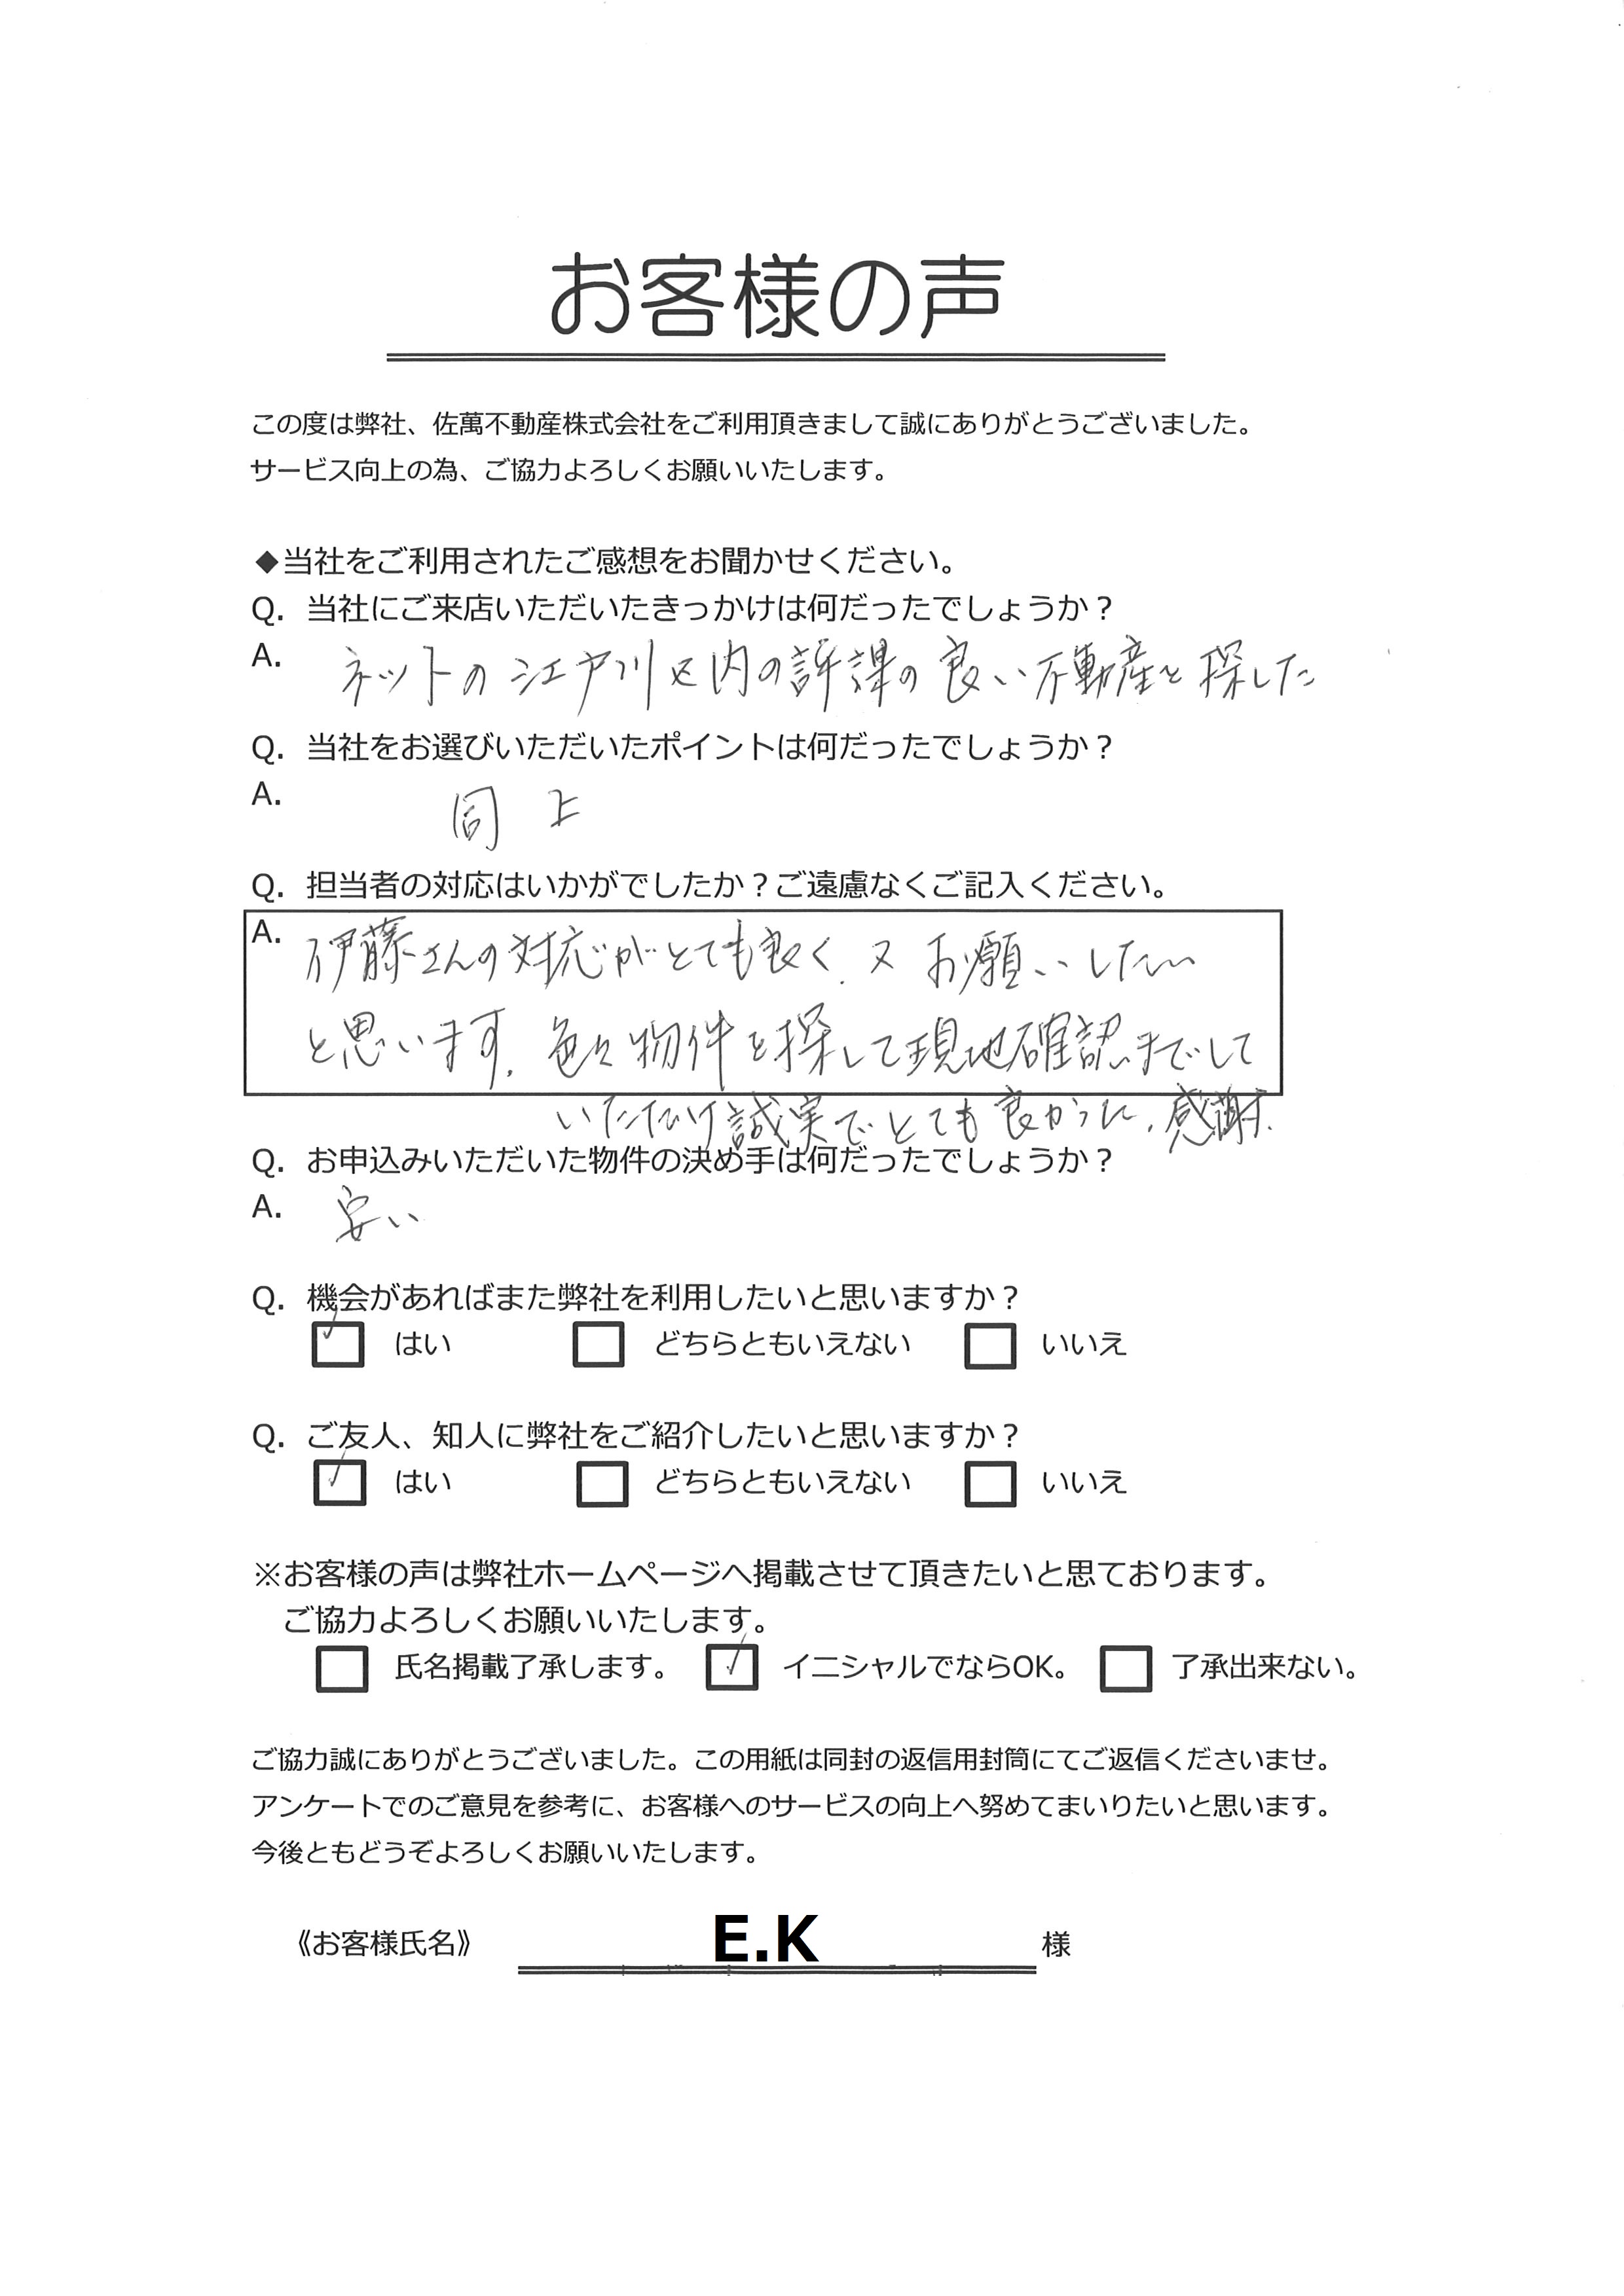 お客様の声
この度は弊社、佐萬不動産株式会社をご利用頂きまして誠にありがとうございました。
サービス向上の為、ご協力よろしくお願いいたします。
◆当社をご利用されたご感想をお聞かせください。
Q. 当社にご来店いただいたきっかけは何だったでしょうか？
A. ネットの江戸川区内の評課の良い不動産を探した
Q. 当社をお選びいただいたポイントは何だったでしょうか？
A. 同上
Q. 担当者の対応はいかがでしたか？ご遠慮なくご記入ください。
A. 伊藤さんの対応がとても良く、又お願いしたい
と思います。色々物件を探して現地確認までして
いただけ誠実でとても良かった、感謝。
Q. お申込みいただいた物件の決め手は何だったでしょうか？
A. 安い
Q. 機会があればまた弊社を利用したいと思いますか？
✓ はい どちらともいえない いいえ
Q. ご友人、知人に弊社をご紹介したいと思いますか？
✓ はい どちらともいえない いいえ
※お客様の声は弊社ホームページへ掲載させて頂きたいと思ております。
ご協力よろしくお願いいたします。
氏名掲載了承します。 ✓ イニシャルでならOK。 了承出来ない。
ご協力誠にありがとうございました。この用紙は同封の返信用封筒にてご返信くださいませ。
アンケートでのご意見を参考に、お客様へのサービスの向上へ努めてまいりたいと思います。
今後ともどうぞよろしくお願いいたします。
《お客様氏名》 E.K 様